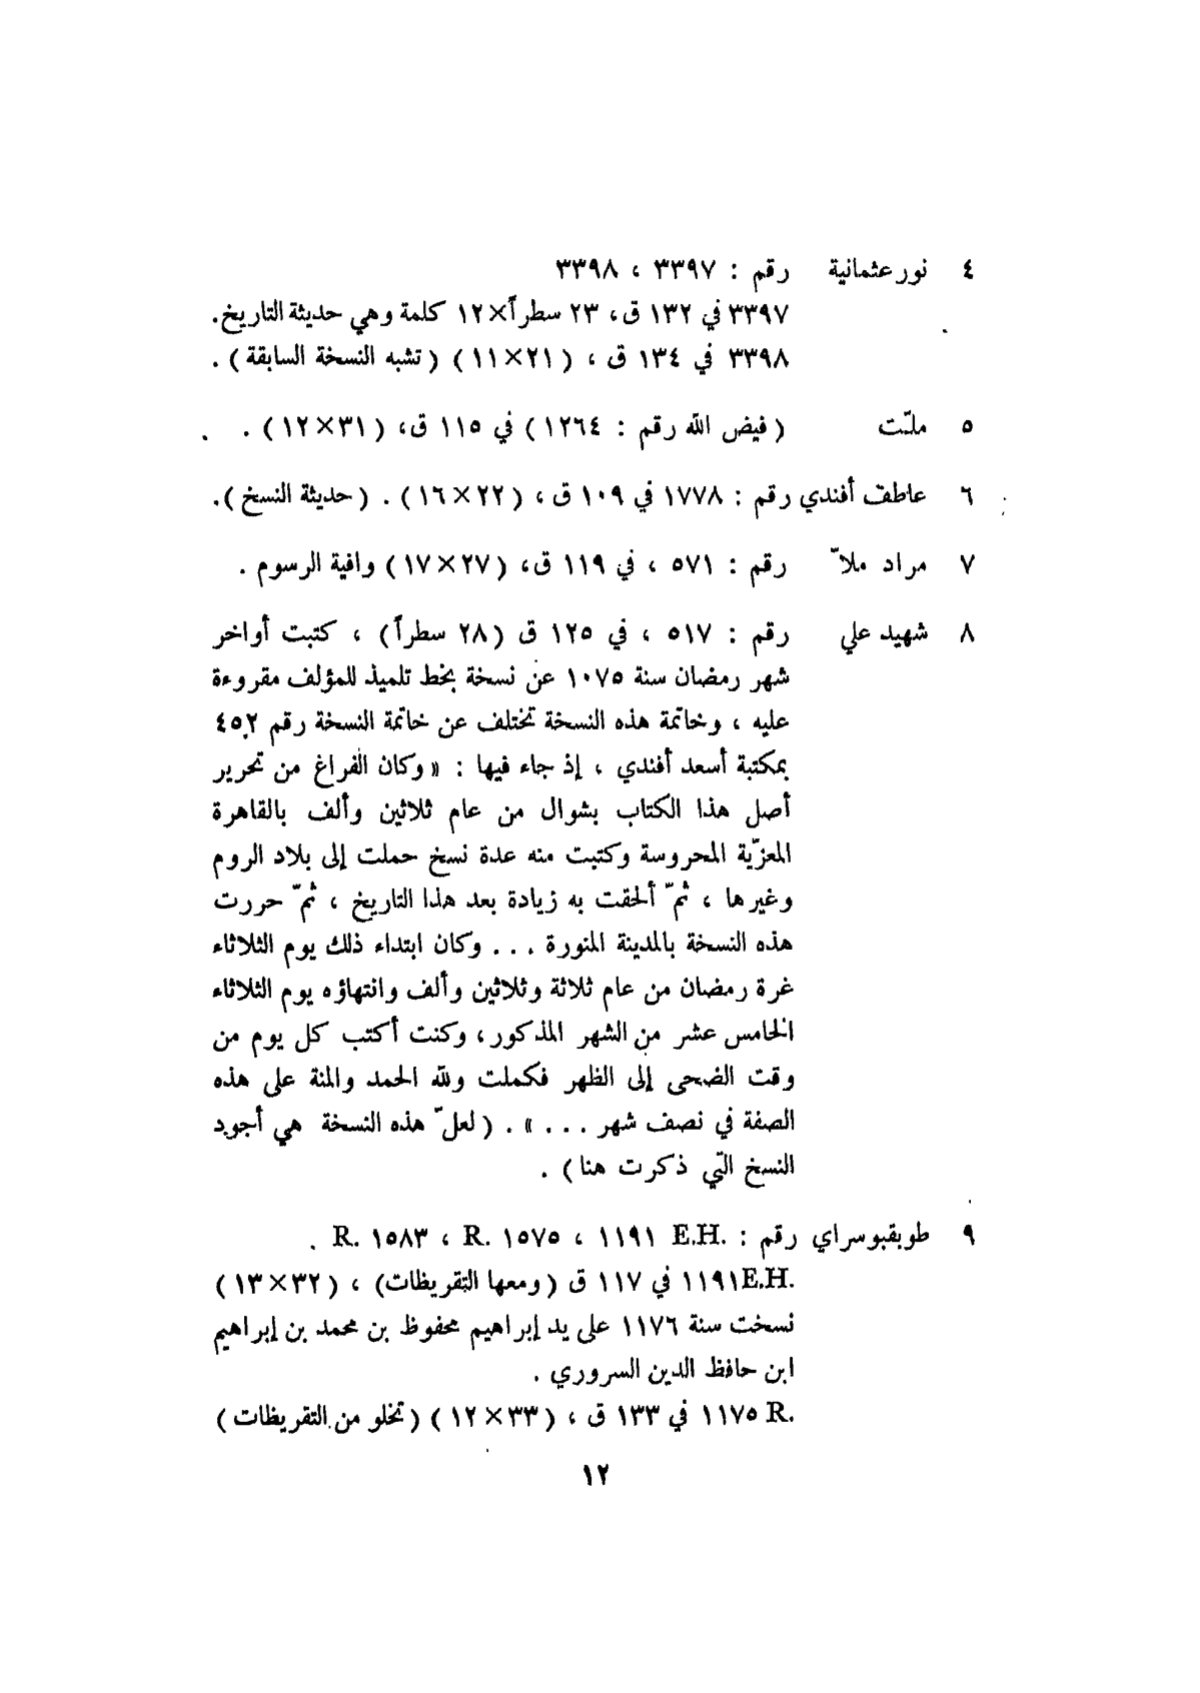 ٤ نورعثمانية رقم : ٣٣٩٧ ، ٣٣٩٨
٣٣٩٧ في ١٣٢ ق، ٢٣ سطراً×١٢ كلمة وهي حديثة التاريخ.
٣٣٩٨ في ١٣٤ ق ، (٢١×١١) (تشبه النسخة السابقة) .
٥ ملّت (فيض الله رقم : ١٢٦٤) في ١١٥ ق، (٣١×١٢) .
٦ عاطف أفندي رقم : ١٧٧٨ في ١٠٩ ق ، (٢٢×١٦) . (حديثة النسخ).
٧ مراد ملاّ رقم : ٥٧١ ، في ١١٩ ق، (٢٧×١٧) وافية الرسوم .
٨ شهيد علي رقم : ٥١٧ ، في ١٢٥ ق (٢٨ سطراً) ، كتبت أواخر
شهر رمضان سنة ١٠٧٥ عن نسخة بخط تلميذ للمؤلف مقروءة
عليه ، وخاتمة هذه النسخة تختلف عن خاتمة النسخة رقم ٤٥٢
بمكتبة أسعد أفندي ، إذ جاء فيها : « وكان الفراغ من تحرير
أصل هذا الكتاب بشوال من عام ثلاثين وألف بالقاهرة
المعزّية المحروسة وكتبت منه عدة نسخ حملت إلى بلاد الروم
وغيرها ، ثمّ ألحقت به زيادة بعد هذا التاريخ ، ثمّ حررت
هذه النسخة بالمدينة المنورة ... وكان ابتداء ذلك يوم الثلاثاء
غرة رمضان من عام ثلاثة وثلاثين وألف وانتهاؤه يوم الثلاثاء
الخامس عشر من الشهر المذكور، وكنت أكتب كل يوم من
وقت الضحى إلى الظهر فكملت ولله الحمد والمنة على هذه
الصفة في نصف شهر ... » . (لعلّ هذه النسخة هي أجود
النسخ التي ذكرت هنا) .
٩ طوبقبوسراي رقم : .E.H ١١٩١ ، R. ١٥٧٥ ، R. ١٥٨٣ .
.E.H١١٩١ في ١١٧ ق (ومعها التقريظات) ، (٣٢×١٣)
نسخت سنة ١١٧٦ على يد إبراهيم محفوظ بن محمد بن إبراهيم
ابن حافظ الدين السروري .
.R ١١٧٥ في ١٣٣ ق ، (٣٣×١٢) (تخلو من التقريظات)
١٢